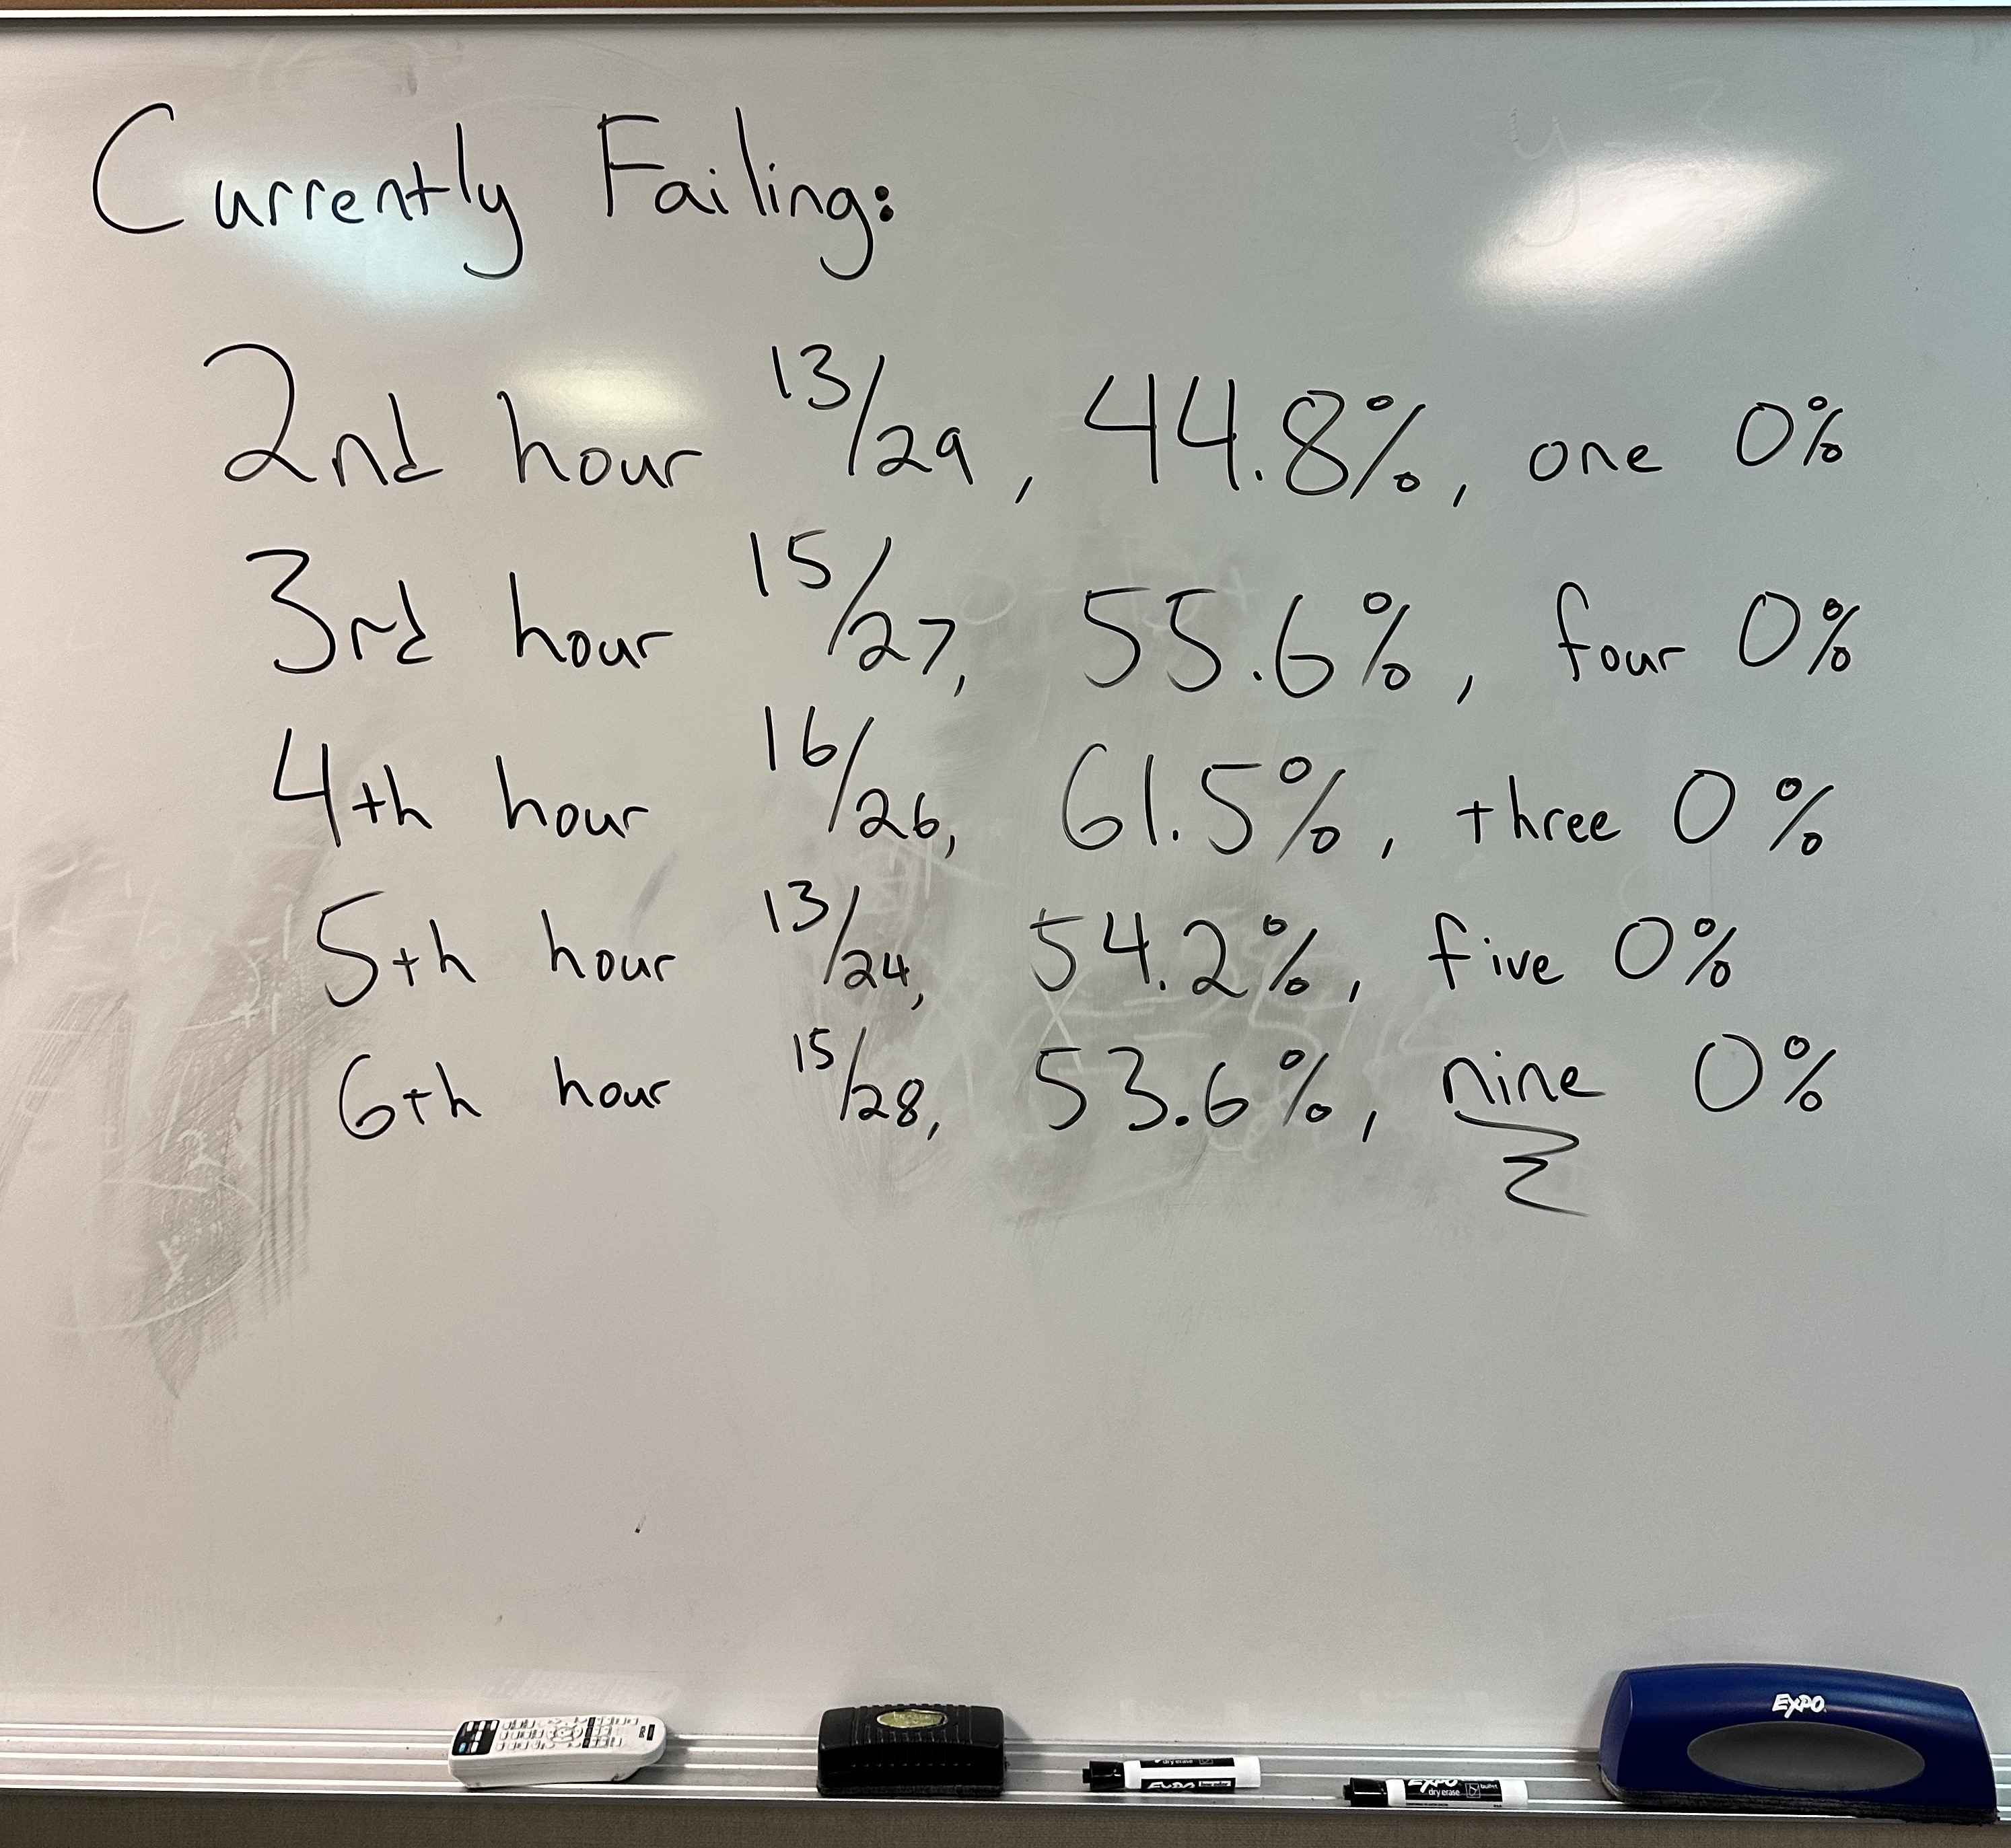 Currently Failing:
2nd hour 13/29, 44.8%, one 0%
3rd hour 15/27, 55.6%, four 0%
4th hour 16/26, 61.5%, three 0%
5th hour 13/24, 54.2%, five 0%
6th hour 15/28, 53.6%, nine 0%
EXPO
EXPO
dry erase
EXPO
dry erase